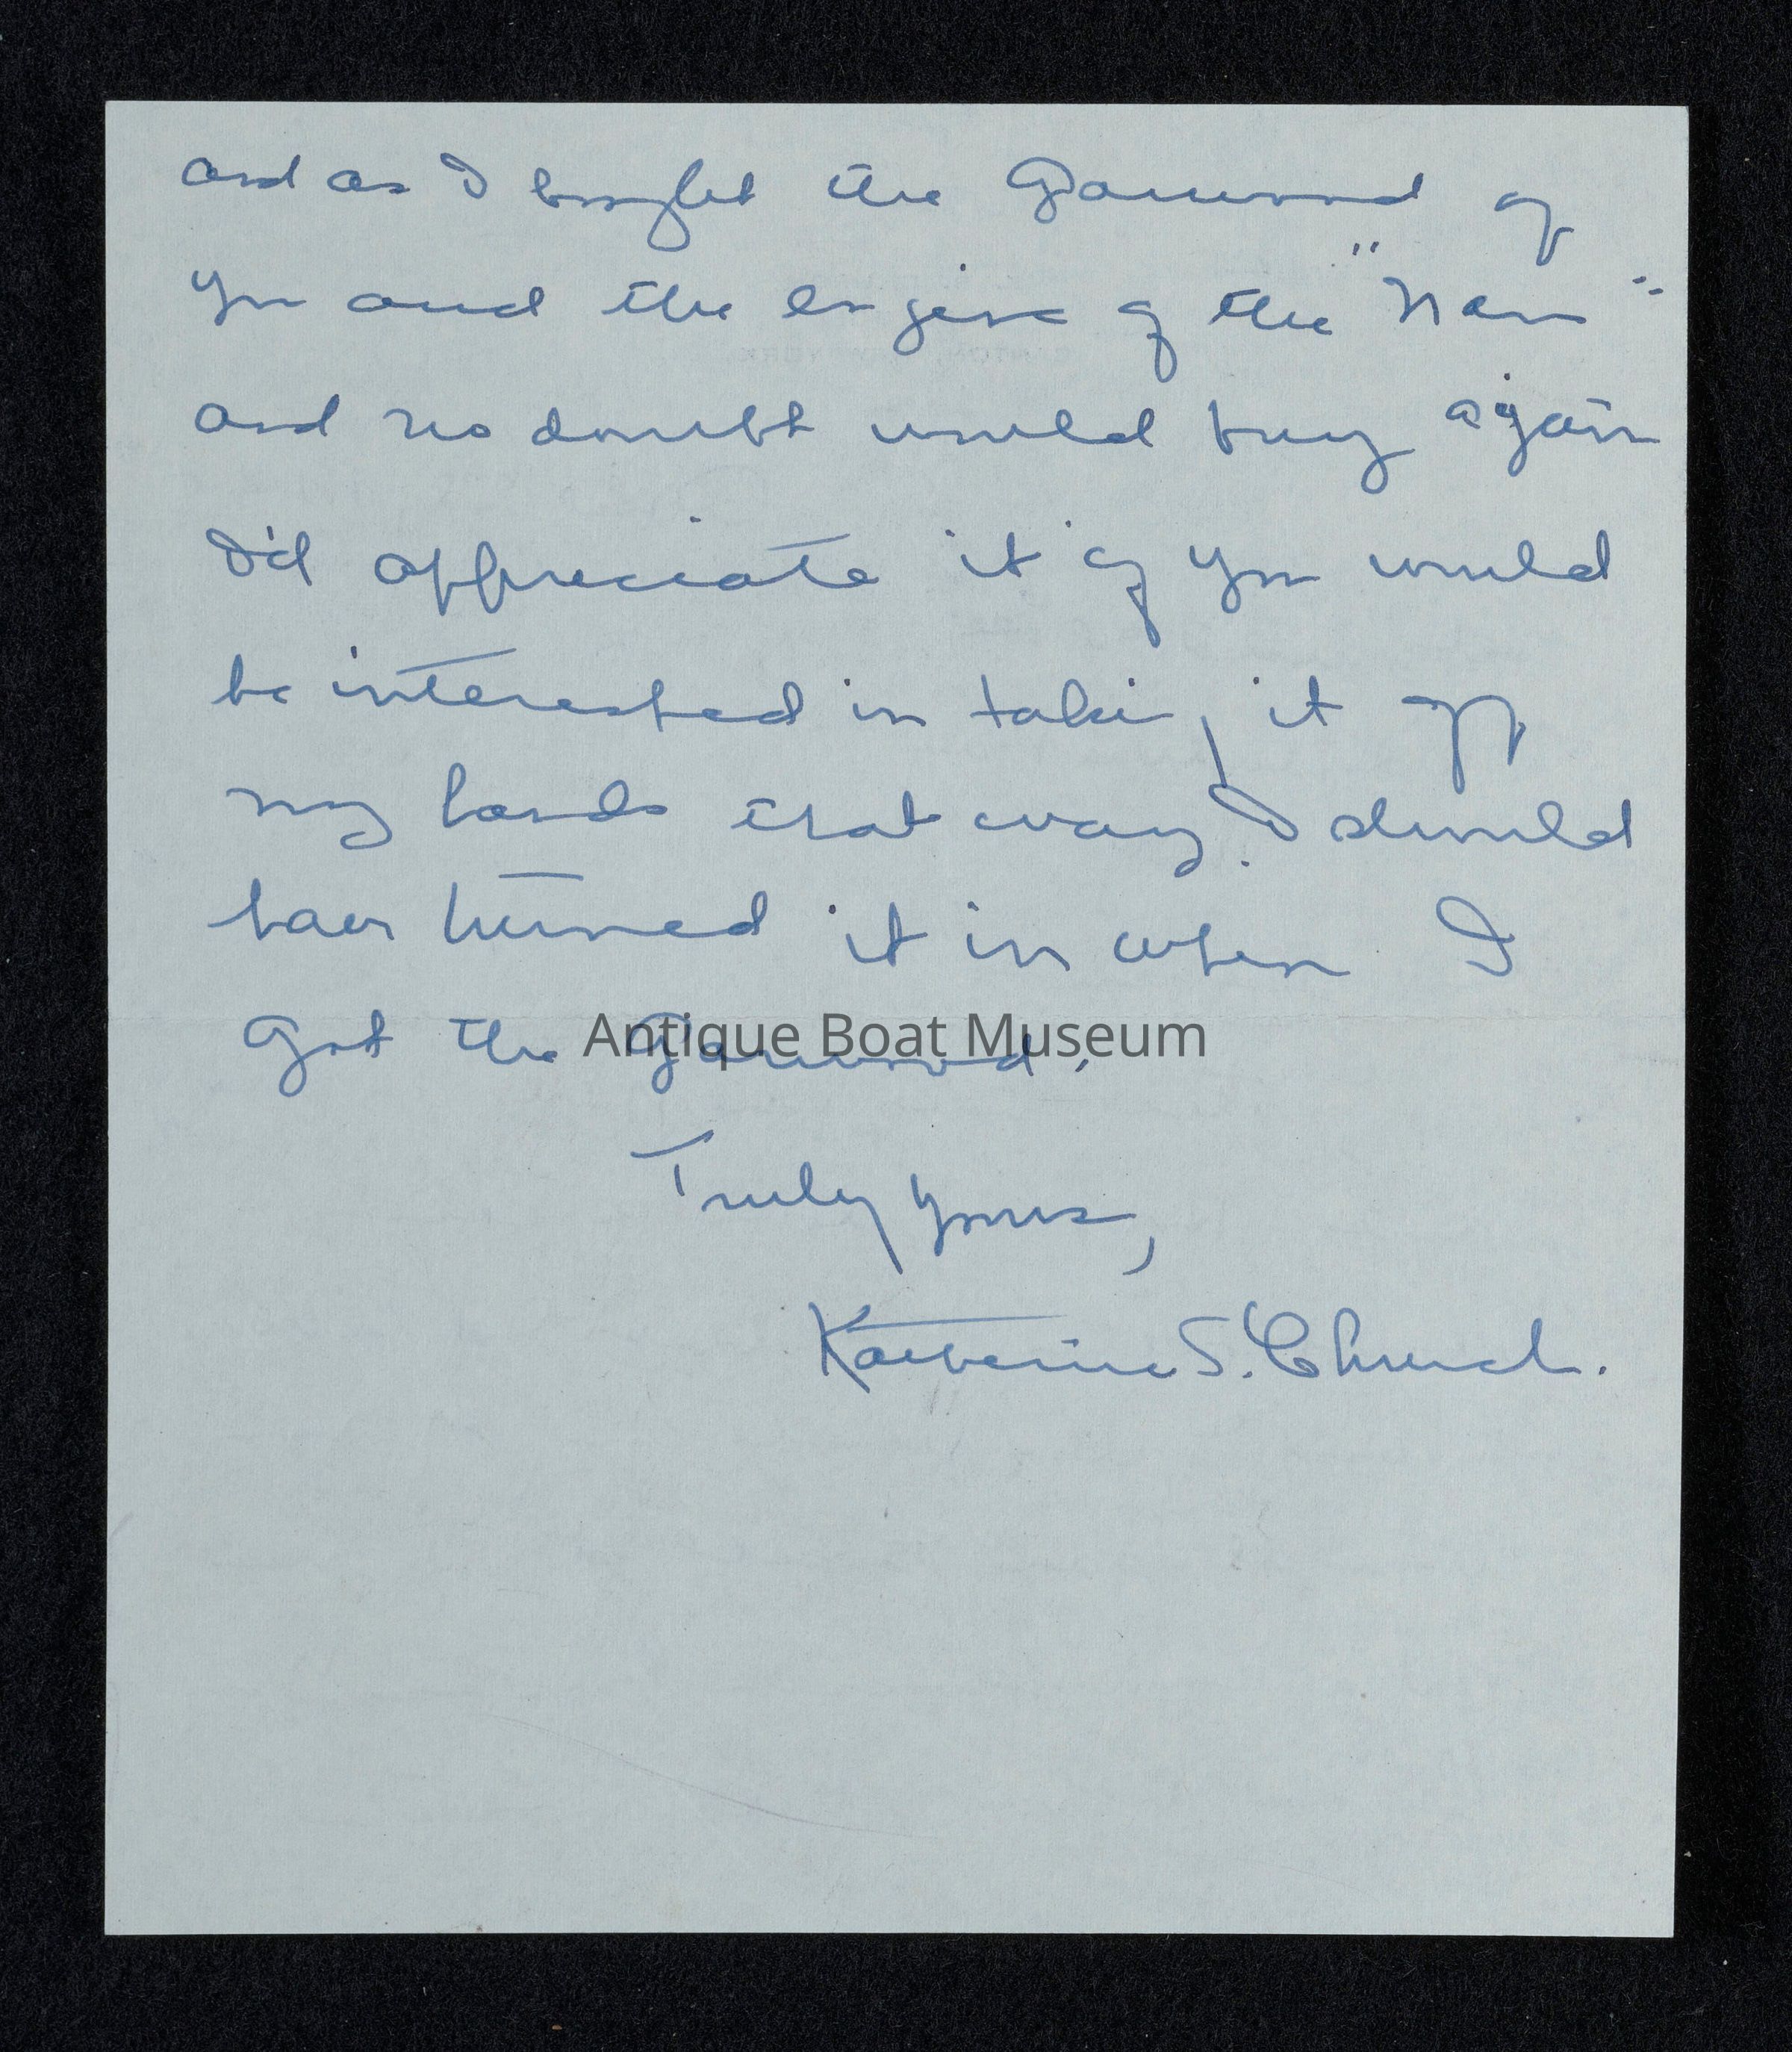 and as I bought the Garwood of
you and the engine of the "Nan"
and no doubt would buy again
I'd appreciate it if you would
be interested in taking it off
my hands that way. I should
have turned it in when I
got the Garwood.
Antique Boat Museum
Truly yours,
Katherine S. Church.